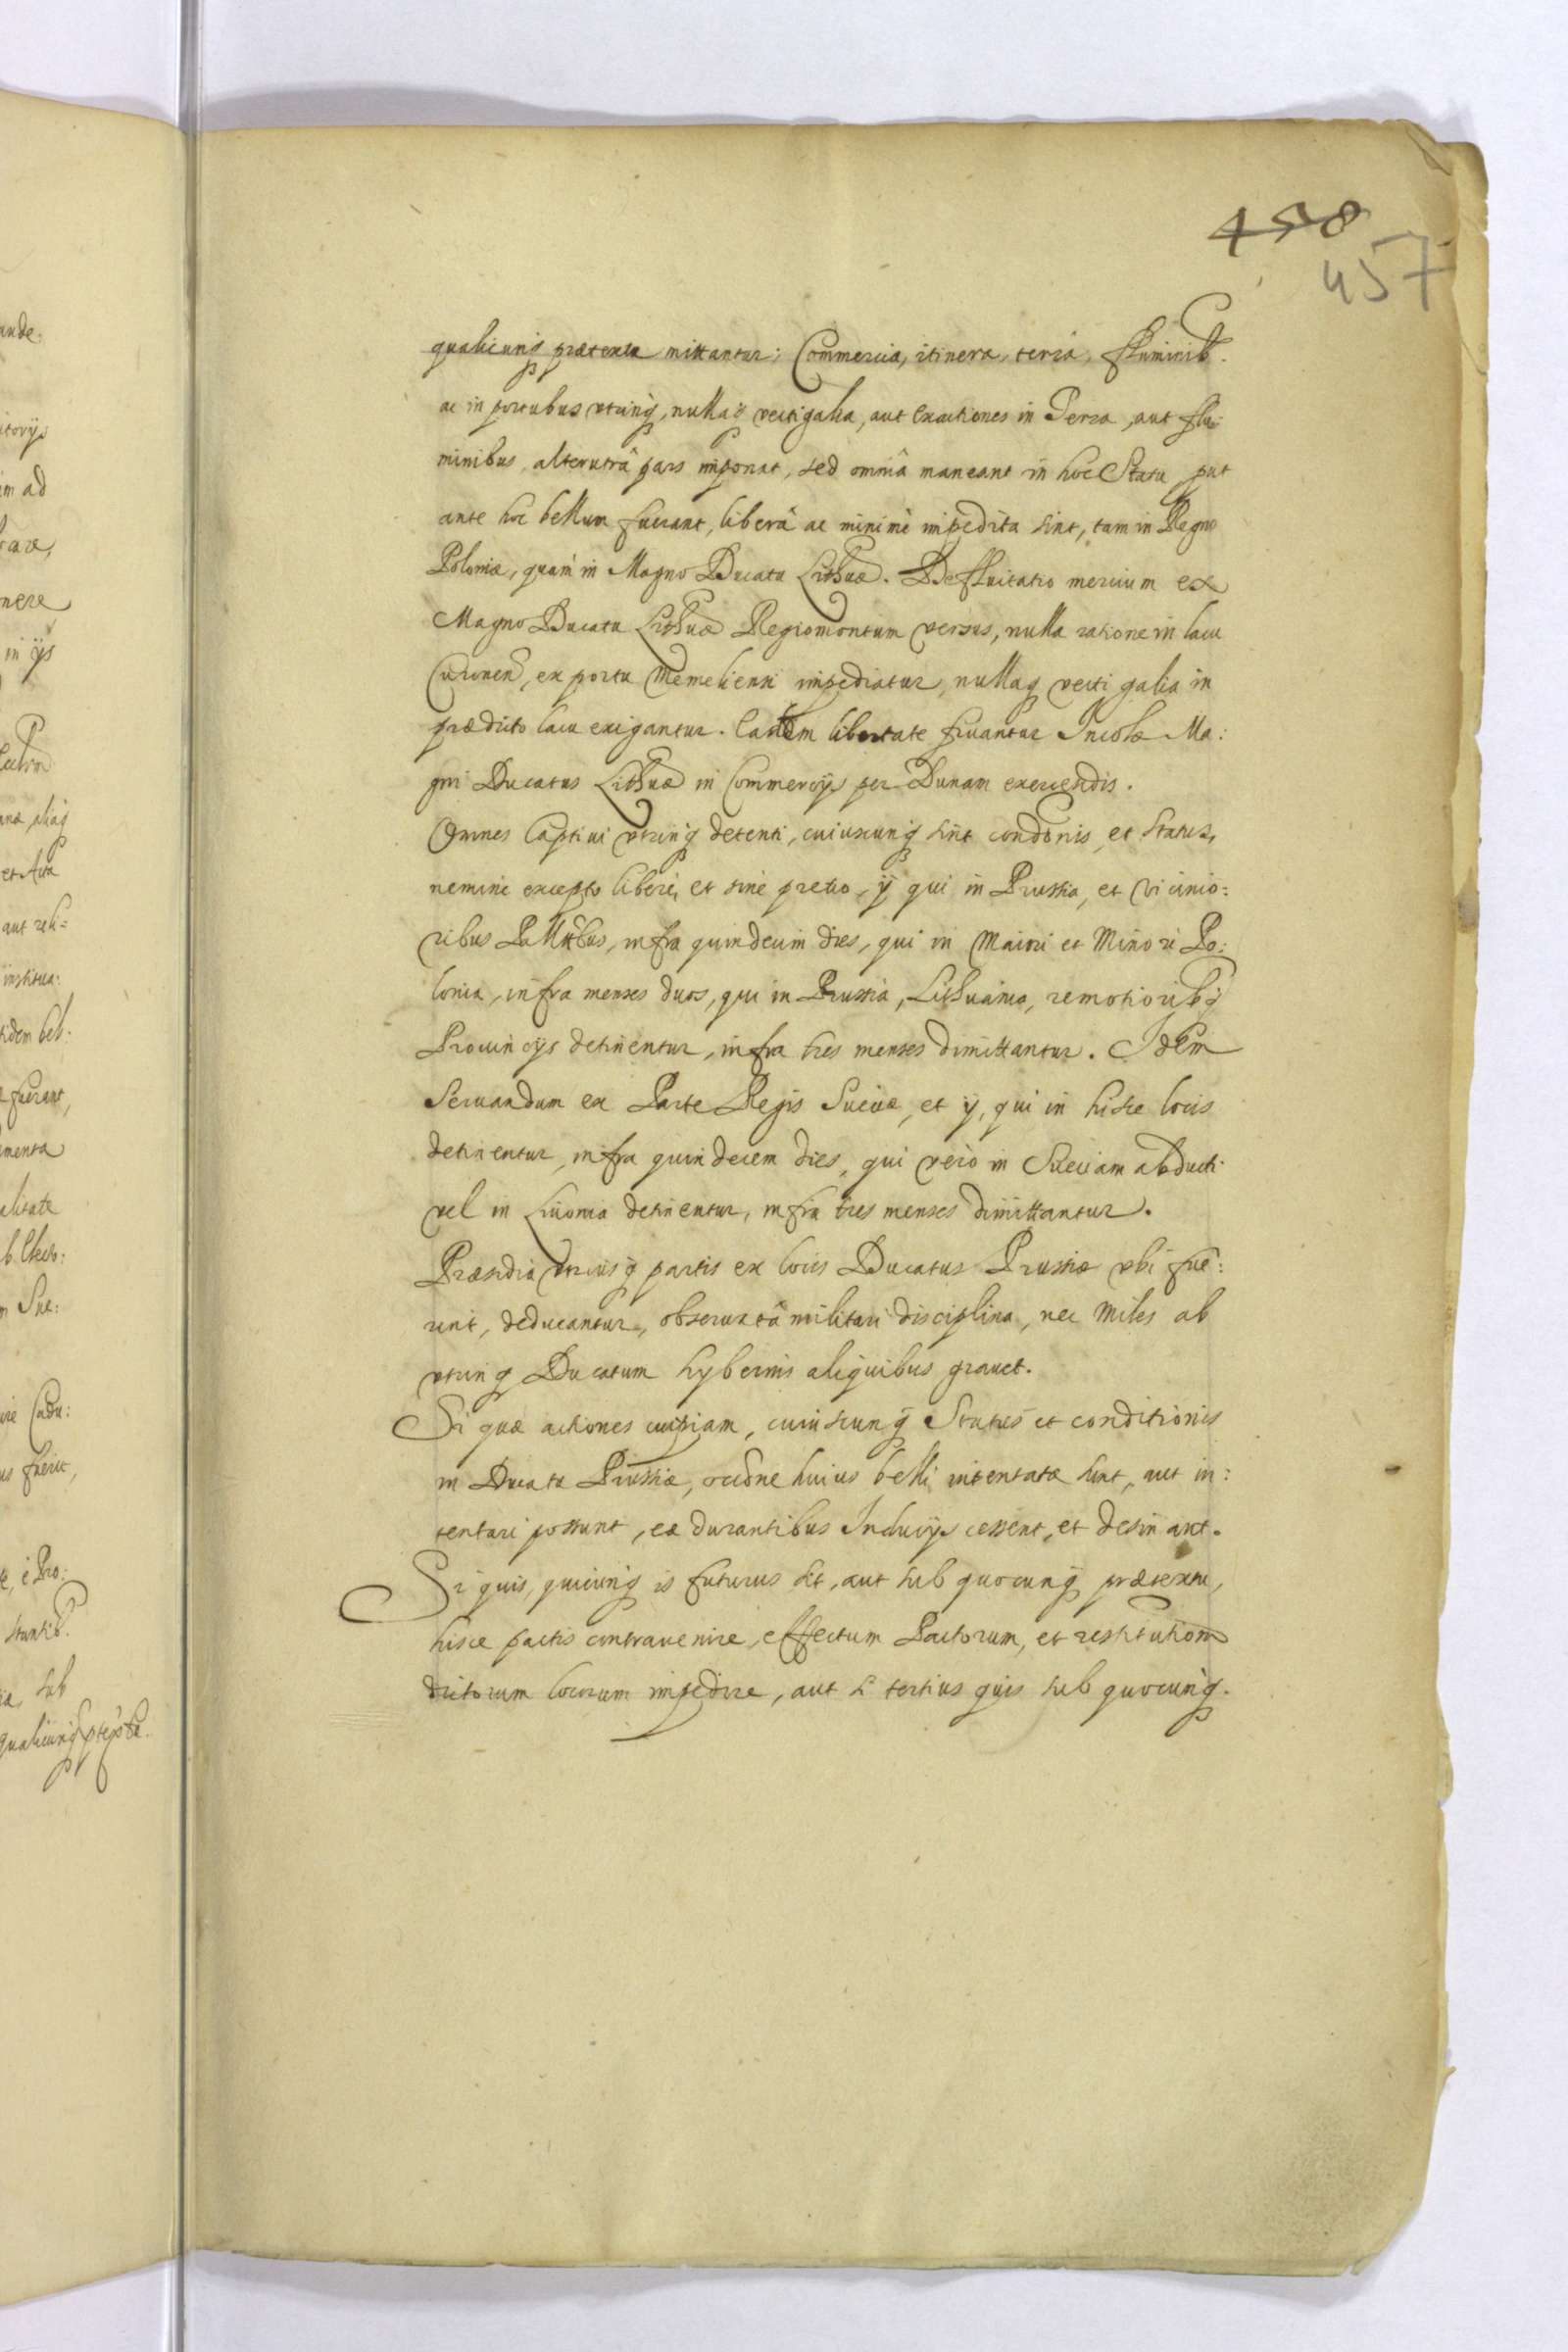 458
457
qualicunq prætextu mittantur: Commercia, itinera, terrâ, fluminib.
ac in portubus utrinq, nullaq vectigalia, aut Exactiones in Terra, aut flu:
minibus, alterutrâ pars imponat, sed omniâ maneant in hoc Statu, put
ante hoc bellum fuerant, liberâ ac minimè impedita sint, tam in Regno
Poloniæ, quàm in Magno Ducatu Lithuæ. Defluitatio mercium ex
Magno Ducatu Lithuæ Regiomontum versus, nulla ratione in lacu
Curonen, ex portu Memeliensi impediatur, nullaq vecti galia in
prædicto lacu exigantur. Eadem libertate fruantur Incolæ Ma:
gni Ducatus Lithuæ in Commercijs per Dunam exercendis.
Omnes Captivi utrinq detenti, cuiuscunq sint condonis, et status,
nemine excepto liberè, et sine pretio, ij qui in Prussia, et vicinio:
ribus Pallatbus, infra quindecim dies, qui in Maiori et Minori Po:
lonia, infra menses duos, qui in Russia, Lithuania, remotioribq
Provincijs detinentur, infra tres menses dimittantur. Idem
Servandum ex Parte Regis Sueciæ, et ij, qui in hisce locis
detinentur, infra quindecem dies, qui verò in Sueciam abducti
vel in Livonia detinentur, infra tres menses dimittantur.
Præsidia utriusq partis ex locis Ducatus Prussiæ ubi fue:
rint, deducantur, observatâ militari disciplina, nec miles ab
utrinq Ducatum hybernis aliquibus gravet.
Si quæ actiones cuipiam, cuiuscunq Status et conditionis
in Ducatu Prussiæ, occõne huius belli intentatæ sint, aut in:
tentari possunt, eæ durantibus Inducijs cessent, et desinant.
Si quis, quicunq is futurus sit, aut sub quocunq prætextu,
hisce pactis contravenire, effectum Pactorum, et restitutionem
dictorum locorum impedire, aut si tertius quis sub quocunq.